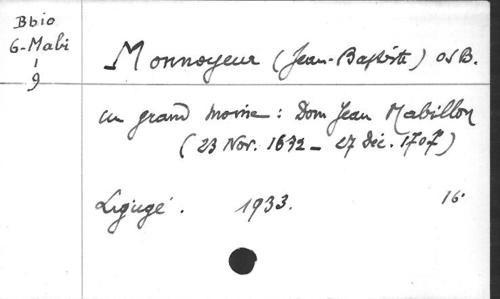 Bbio
G-Mabi
9
Monnoyeur (Jean-Baptiste) OSB.
un grand moine : Dom Jean Mabillon
(23 Nov. 1632 - 27 déc. 1707)
Ligugé. 1933. 16°